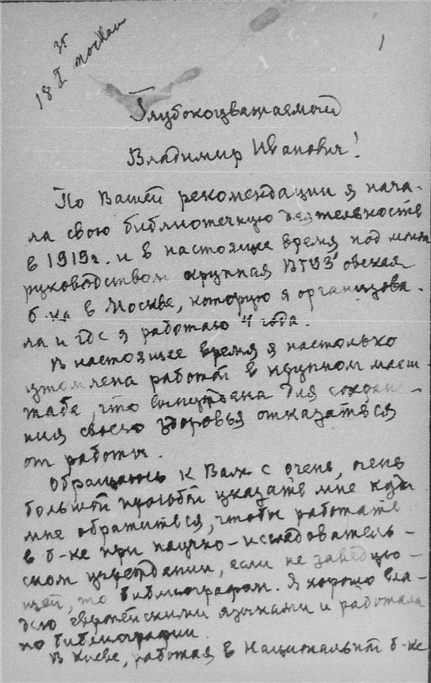 18 I 35 Москва
1
Глубокоуважаемый
Владимир Иванович!
По Вашей рекомендации я нача-
ла свою библиотечную деятельность
в 1919 г. и в настоящее время под моим
руководством крупная ВТУЗ'овская
б-ка в Москве, которую я организова-
ла и где я работаю 4 года.
В настоящее время я настолько
утомлена работой в крупном масш-
табе, что вынуждена для сохране-
ния своего здоровья отказаться
от работы.
Обращаюсь к Вам с очень, очень
большой просьбой указать мне куда
мне обратиться, чтобы работать
в б-ке при научно-исследователь-
ском учреждении, если не заведую-
щей, то библиографом. Я хорошо вла-
дею европейскими языками и работала
по библиографии.
В Киеве, работая в Национальной б-ке